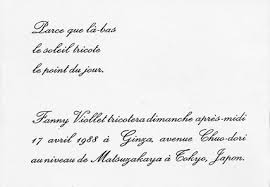 Parce que là-bas
le soleil tricote
le point du jour.
Fanny Viollet tricotera dimanche après-midi
17 avril 1988 à Ginza, avenue Chuo-dori
au niveau de Matsuzakaya à Tokyo, Japon.